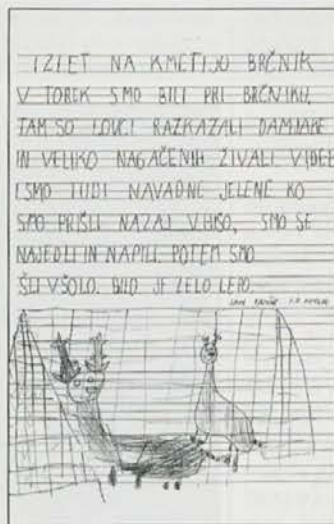 IZLET NA KMETIJO BRČNIK
V TOREK SMO BILI PRI BRČNIKU.
TAM SO LOVCI RAZKAZALI DAMJAKE
IN VELIKO NAGAČENIH ŽIVALI. VIDEL
I SMO TUDI NAVADNE JELENE. KO
SMO PRIŠLI NAZAJ V HIŠO, SMO SE
NAJEDLI IN NAPILI. POTEM SMO
ŠLI V ŠOLO. BILO JE ZELO LEPO.